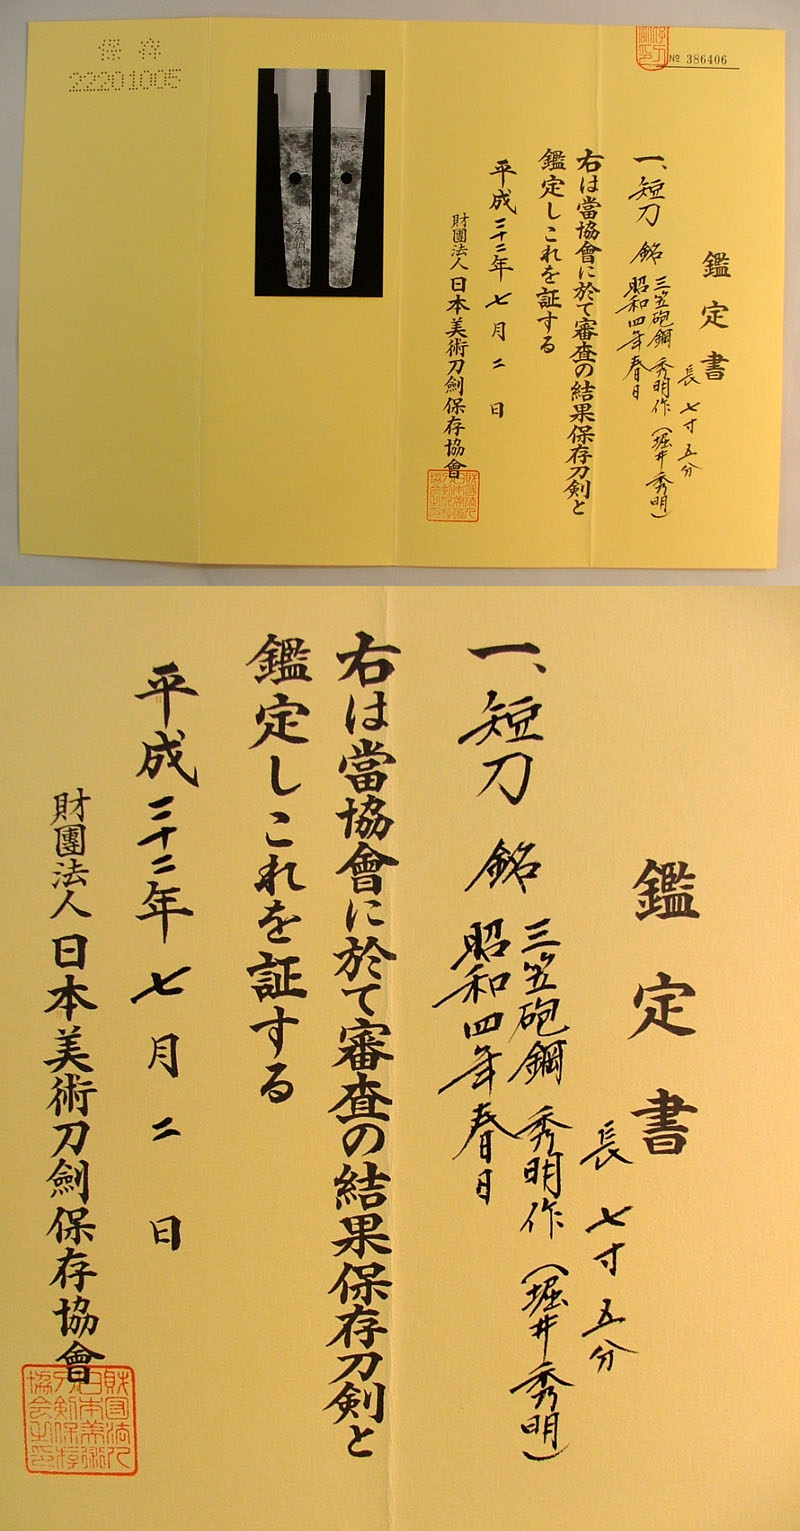 保存
22201005
№ 386406
鑑定書
長 七寸五分
一、短刀 銘 三笠砲鋼 秀明作 (堀井秀明)
昭和四年春日
右は當協會に於て審査の結果保存刀剣と
鑑定しこれを証する
平成二十二年七月二日
財團法人日本美術刀劍保存協會
財団法人
日本美術
刀剣保存
協会之印
鑑定書
長 七寸五分
一、短刀 銘 三笠砲鋼 秀明作 (堀井秀明)
昭和四年春日
右は當協會に於て審査の結果保存刀剣と
鑑定しこれを証する
平成二十二年七月二日
財團法人日本美術刀劍保存協會
財団法人
日本美術
刀剣保存
協会之印